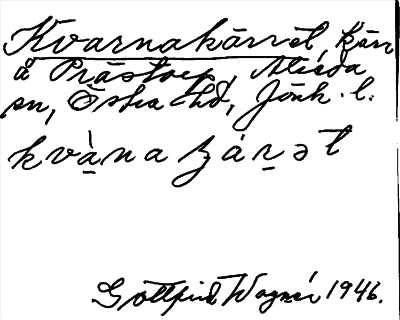 Kvarnakärret, kärr
å Prästorp, Alseda
sn, Östra hd, Jönk. l.
kvàna ʒárət
Gottfrid Wagnér 1946.